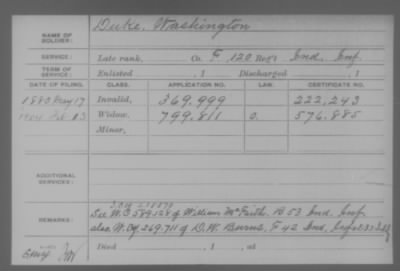 NAME OF SOLDIER: Duke, Washington
SERVICE: Late rank, Co. F, 120 Reg't Ind. Inf.
TERM OF SERVICE: Enlisted , 1 Discharged , 1
DATE OF FILING. CLASS. APPLICATION NO. LAW. CERTIFICATE NO.
1880 May 17 Invalid, 369.999 222,243
1904 13 Widow, 799.811 O. 576.885
Minor,
ADDITIONAL SERVICES:
REMARKS: See W.O 589.128 of William B 53 Ind. Inf.
also W.O. 269.711 of D.W. Burns, F 42 Ind. Inf.
Died , 1 , at